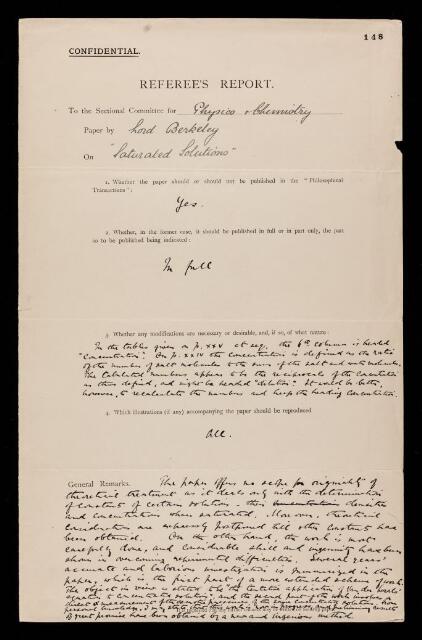 148
CONFIDENTIAL.
REFEREE'S REPORT.
To the Sectional Committee for Physics & Chemistry
Paper by Lord Berkeley
On "Saturated Solutions"
1. Whether the paper should or should not be published in the "Philosophical
Transactions":
Yes.
2. Whether, in the former case, it should be published in full or in part only, the part
so to be published being indicated:
In full
3. Whether any modifications are necessary or desirable, and, if so, of what nature:
In the tables given on p. xxv et seq. the 6th column is headed
"Concentration". On p. xxiv the concentration is defined as the ratio
of the number of salt molecules to the sum of the salt and water molecules.
The tabulated numbers appear to be the reciprocals of the concentration
as thus defined, and might be headed "dilution". It would be better,
however, to recalculate the numbers and keep the heading Concentration.
4. Which illustrations (if any) accompanying the paper should be reproduced
All.
General Remarks. The paper offers no scope for originality of
theoretical treatment as it deals only with the determination
of constants of certain solutions - their densities
and concentrations when saturated. Moreover, theoretical
considerations are expressly postponed till other constants have
been obtained. On the other hand, the work is most
carefully done, and considerable skill and ingenuity has been
shown in overcoming experimental difficulties. Several years'
accurate and laborious investigation is summarized in the
paper, which is the first part of a more extended scheme of work.
The object in view is stated to be the tentative application of Van der Waals'
equation to concentrated solutions, and the second part of the work involves a
direct measurement of the osmotic pressures of the same concentrated solutions. From
personal knowledge, I can state that
of great promise has been obtained by a new and ingenious method